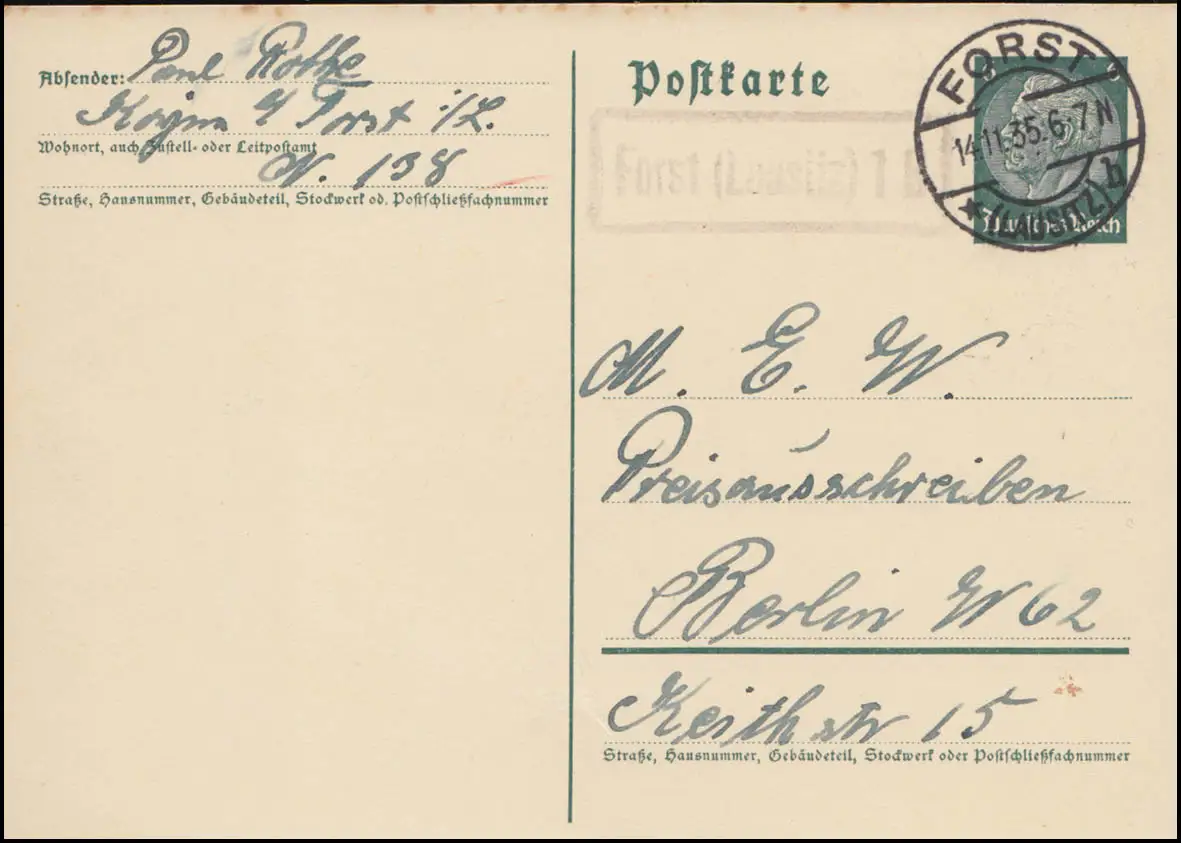 Absender: Paul Rothe
Kojne b/ Forst i/L.
Wohnort, auch Zustell- oder Leitpostamt
N. 138
Straße, Hausnummer, Gebäudeteil, Stockwerk od. Postschließfachnummer
Postkarte
Forst (Lausitz) 1
FORST
14.11.35.6-7N
* (LAUSITZ) b
Deutsches Reich
M. E. W.
Preisausschreiben
Berlin W 62
Keithstr 15
Straße, Hausnummer, Gebäudeteil, Stockwerk oder Postschließfachnummer